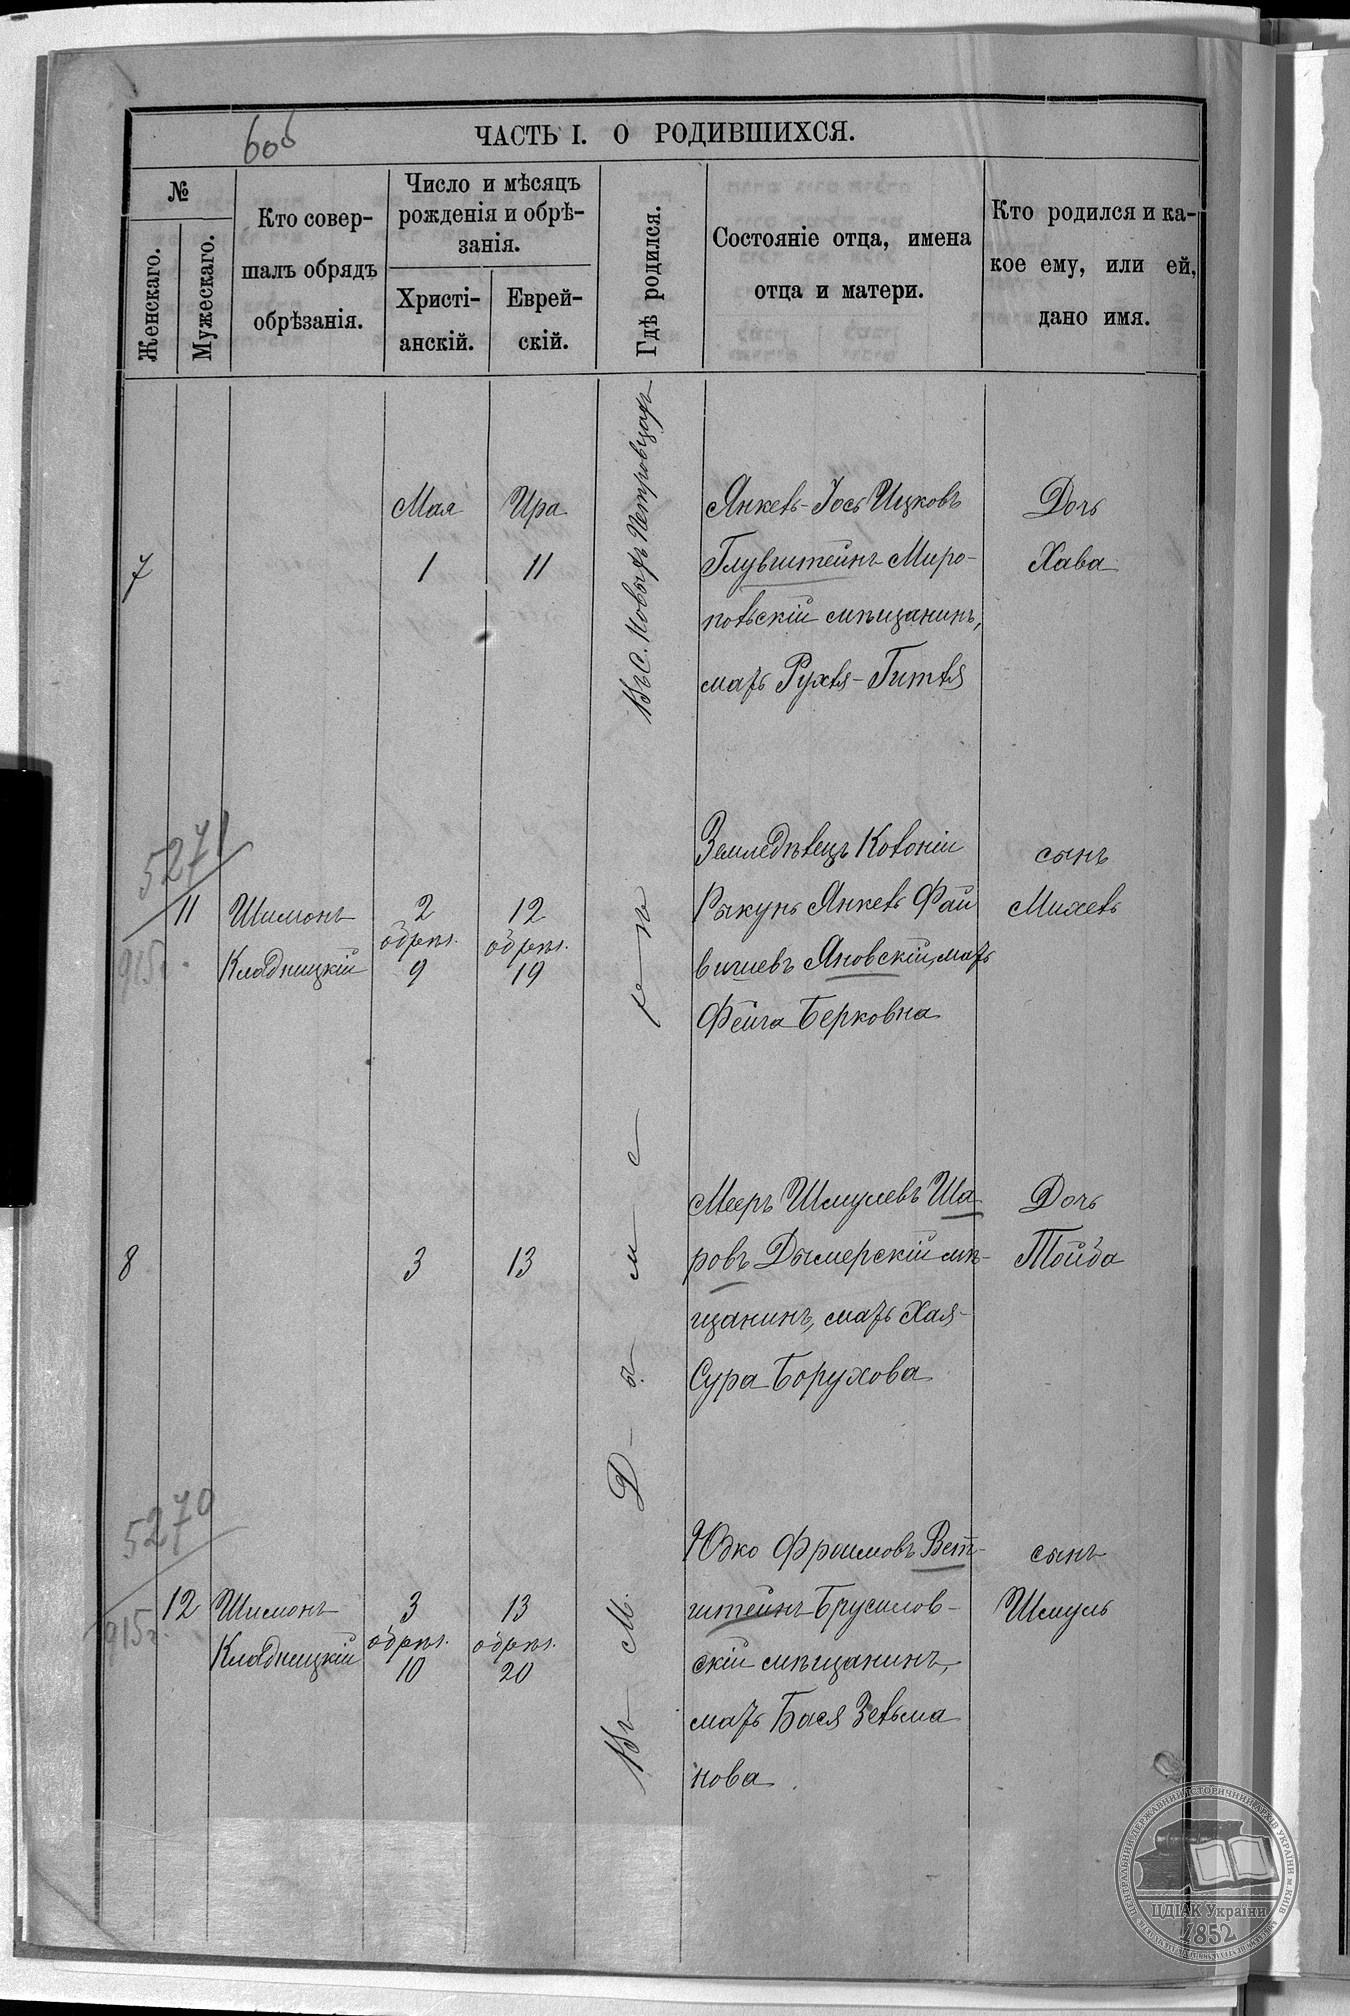 606
ЧАСТЬ I. О РОДИВШИХСЯ.
№
Женскаго.
Мужескаго.
Кто совер-
шалъ обрядъ
обрѣзанія.
Число и мѣсяцъ
рожденія и обрѣ-
занія.
Христі-
анскій.
Еврей-
скій.
Гдѣ родился.
Состояніе отца, имена
отца и матери.
Кто родился и ка-
кое ему, или ей,
дано имя.
7
Мая
1
Ира
11
Въ С. Новыхъ Петровцахъ
Янкель-Іось Ицковъ
Глувштейнъ Миро-
польскій мѣщанинъ,
мать Рухля-Гитля
Дочь
Хава
5271
915г.
11
Шимонъ
Кладницкій
2
обрѣз.
9
12
обрѣз.
19
Земледѣлецъ Колоніи
Рыкунь Янкель Фай
вишевъ Яновскій, мать
Фейга Берковна
сынъ
Михель
Въ М. Дымерѣ
8
3
13
Мееръ Шмулевъ Ша
ровъ Дымерскій мѣ-
щанинъ, мать Хая-
Сура Борухова
Дочь
Тойба
5270
915г.
12
Шимонъ
Кладницкій
3
обрѣз.
10
13
обрѣз.
20
Юдко Фроимовъ Вет-
штейнъ Брусилов-
скій мѣщанинъ,
мать Бася Зельма
нова
сынъ
Шмуль
ЦЕНТРАЛЬНИЙ ДЕРЖАВНИЙ ІСТОРИЧНИЙ АРХІВ УКРАЇНИ м. КИЇВ
ЦДІАК України
1852